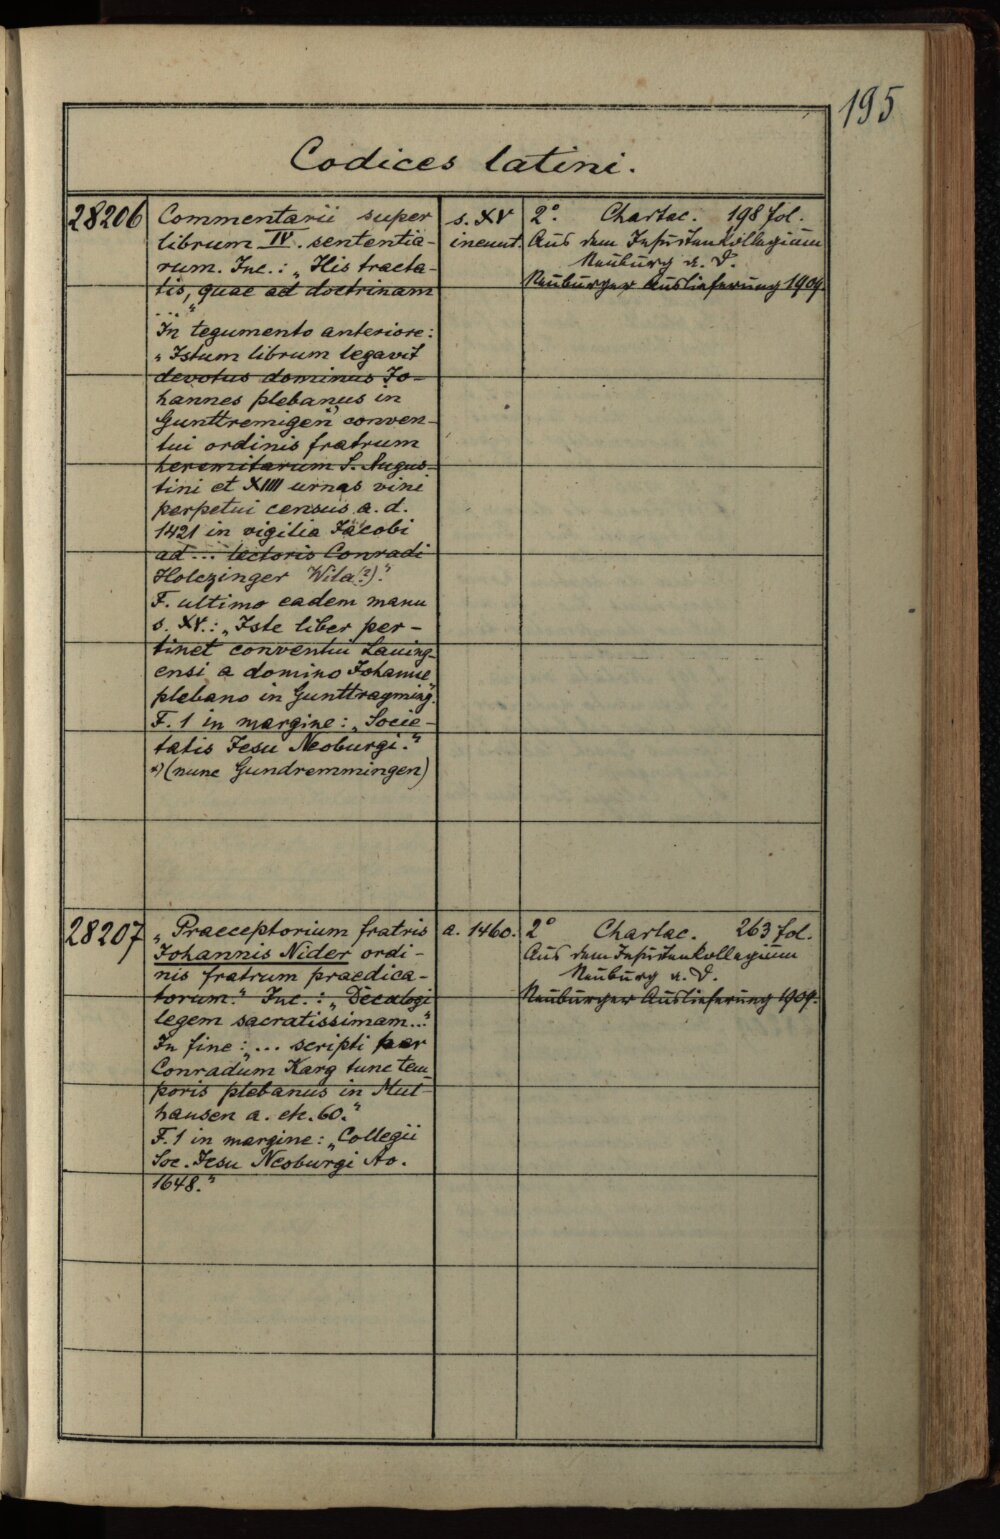 195
Codices latini.
28206
Commentarii super
librum IV. sententia-
rum. Inc.: „His tracta-
tis, quae ad doctrinam
..."
In tegumento anteriore:
„Istum librum legavit
devotus dominus Jo-
hannes plebanus in
Gunttremigen conven-
tui ordinis fratrum
heremitarum S. Augus-
tini et XIIII urnas vini
perpetui census a. d.
1421 in vigilia Jacobi
ad ... lectoris Conradi
Holczinger Wila(?)."
F. ultimo eadem manu
s. XV.: „Iste liber per-
tinet conventui Lauing-
ensi a domino Johanne
plebano in Gunttragming."
F. 1 in margine: „Socie-
tatis Jesu Neoburgi."
*) (nunc Gundremmingen)
s. XV
ineunt.
2°. Chartac. 198 fol.
Aus dem Jesuitenkollegium
Neuburg a. D.
Neuburger Auslieferung 1909.
28207
„Praeceptorium fratris
Johannis Nider ordi-
nis fratrum praedica-
torum." Inc.: „Decalogi
legem sacratissimam..."
In fine: „... scripti per
Conradum Karg tunc tem
poris plebanus in Mul-
hausen a. etc. 60."
F. 1 in margine: „Collegii
Soc. Jesu Neoburgi Ao.
1648."
a. 1460.
2° Chartac. 263 fol.
Aus dem Jesuitenkollegium
Neuburg a. D.
Neuburger Auslieferung 1909.